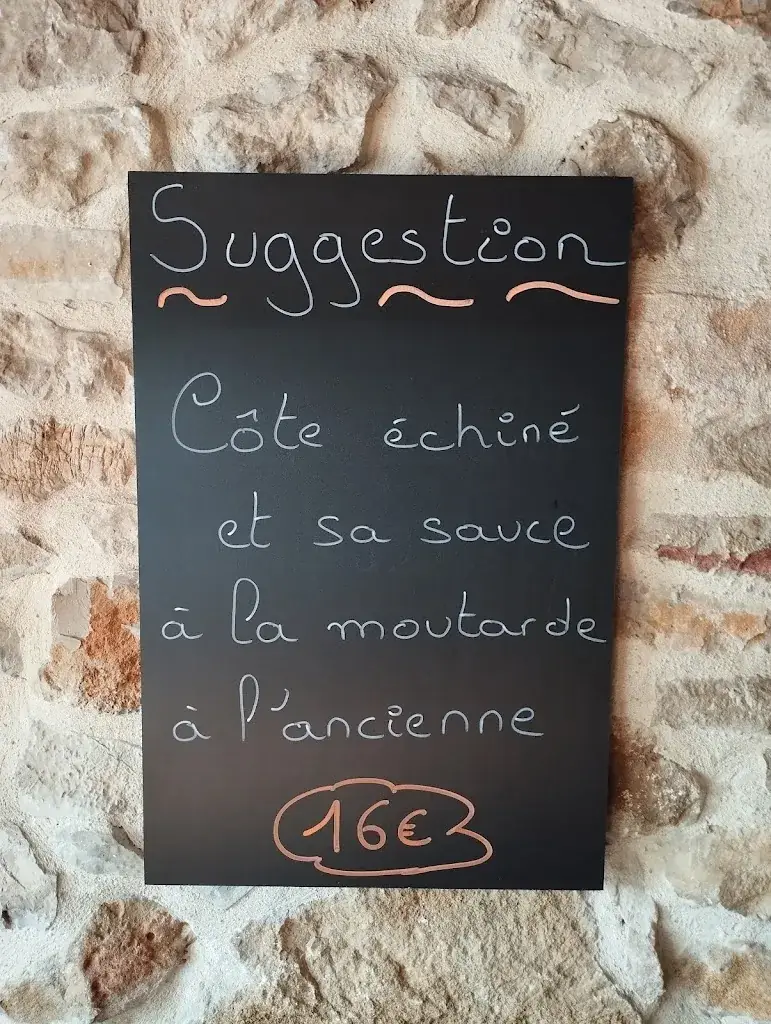 Suggestion
Côte échiné
et sa sauce
à la moutarde
à l'ancienne
16€